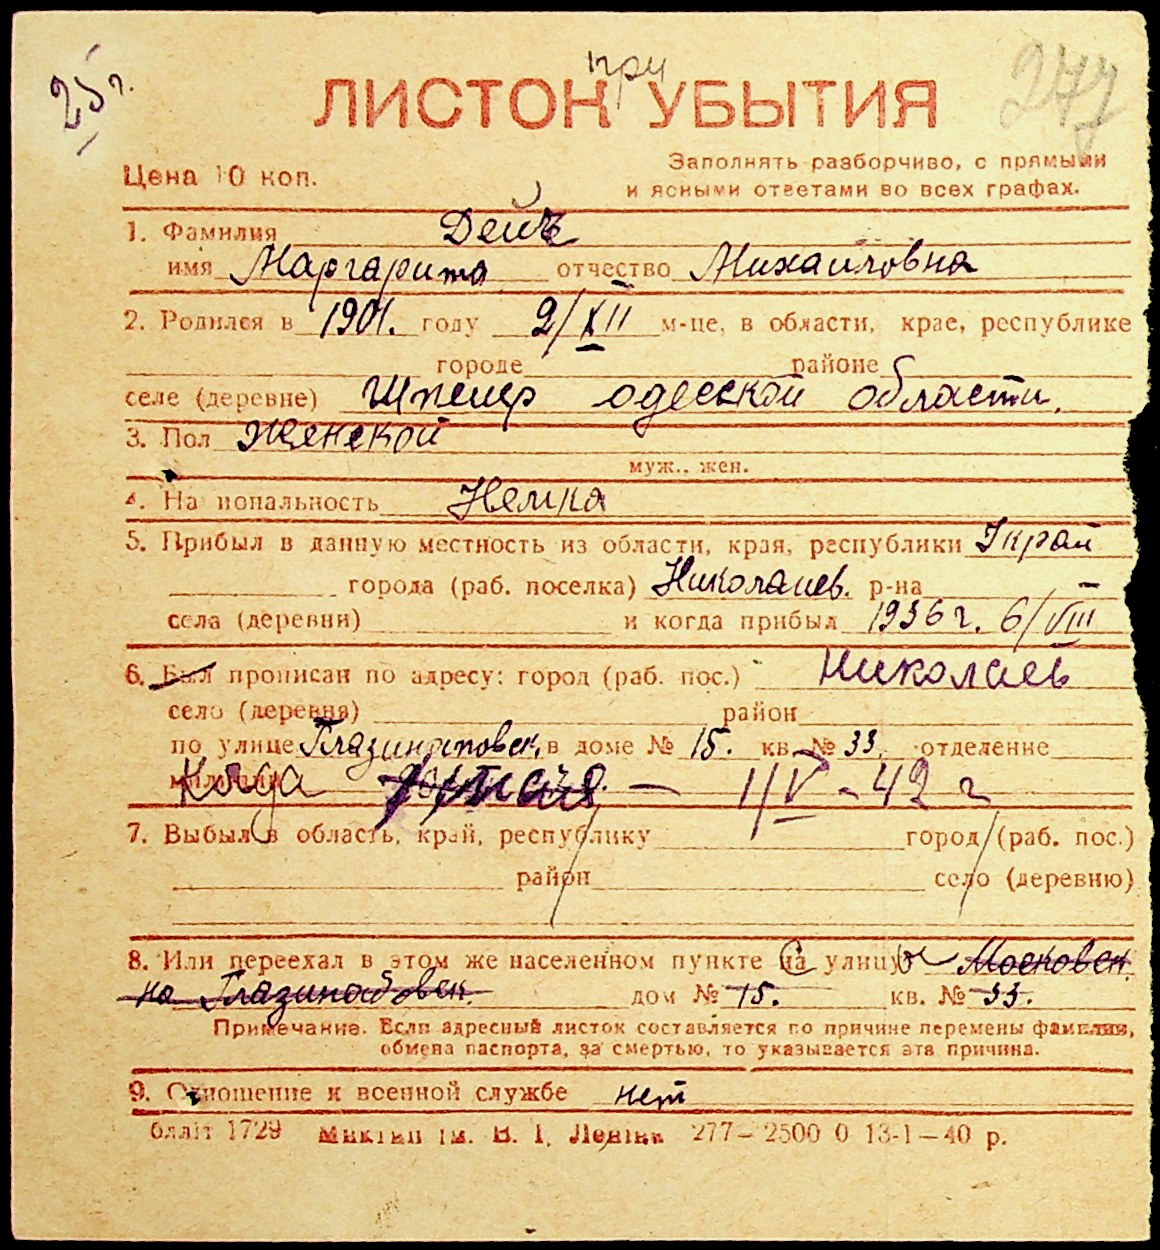 25 г.
при
277
ЛИСТОК УБЫТИЯ
Цена 10 коп.
Заполнять разборчиво, с прямыми
и ясными ответами во всех графах.
1. Фамилия Дейч
имя Маргарита отчество Михайловна
2. Родился в 1901. году 2/XII м-це, в области, крае, республике
городе районе
селе (деревне) Шпеир одесской области.
3. Пол Женской
муж., жен.
4. Национальность Немка
5. Прибыл в данную местность из области, края, республики
города (раб. поселка) Николаев. р-на
села (деревни) и когда прибыл 1936 г. 6/VIII
6. Был прописан по адресу: город (раб. пос.) Николаев
село (деревня) район
по улице в доме № 15. кв. № 33. отделение
милиции
Када 1/V - 42 г
7. Выбыл в область, край, республику город (раб. пос.)
район село (деревню)
8. Или переехал в этом же населенном пункте на улицу Московск.
на дом № 15. кв. № 33.
Примечание. Если адресный листок составляется по причине перемены фамилии,
обмена паспорта, за смертью, то указывается эта причина.
9. Отношение к военной службе нет
блліт 1729 ім. В. І. Леніна 277—2500 0 13-1—40 р.